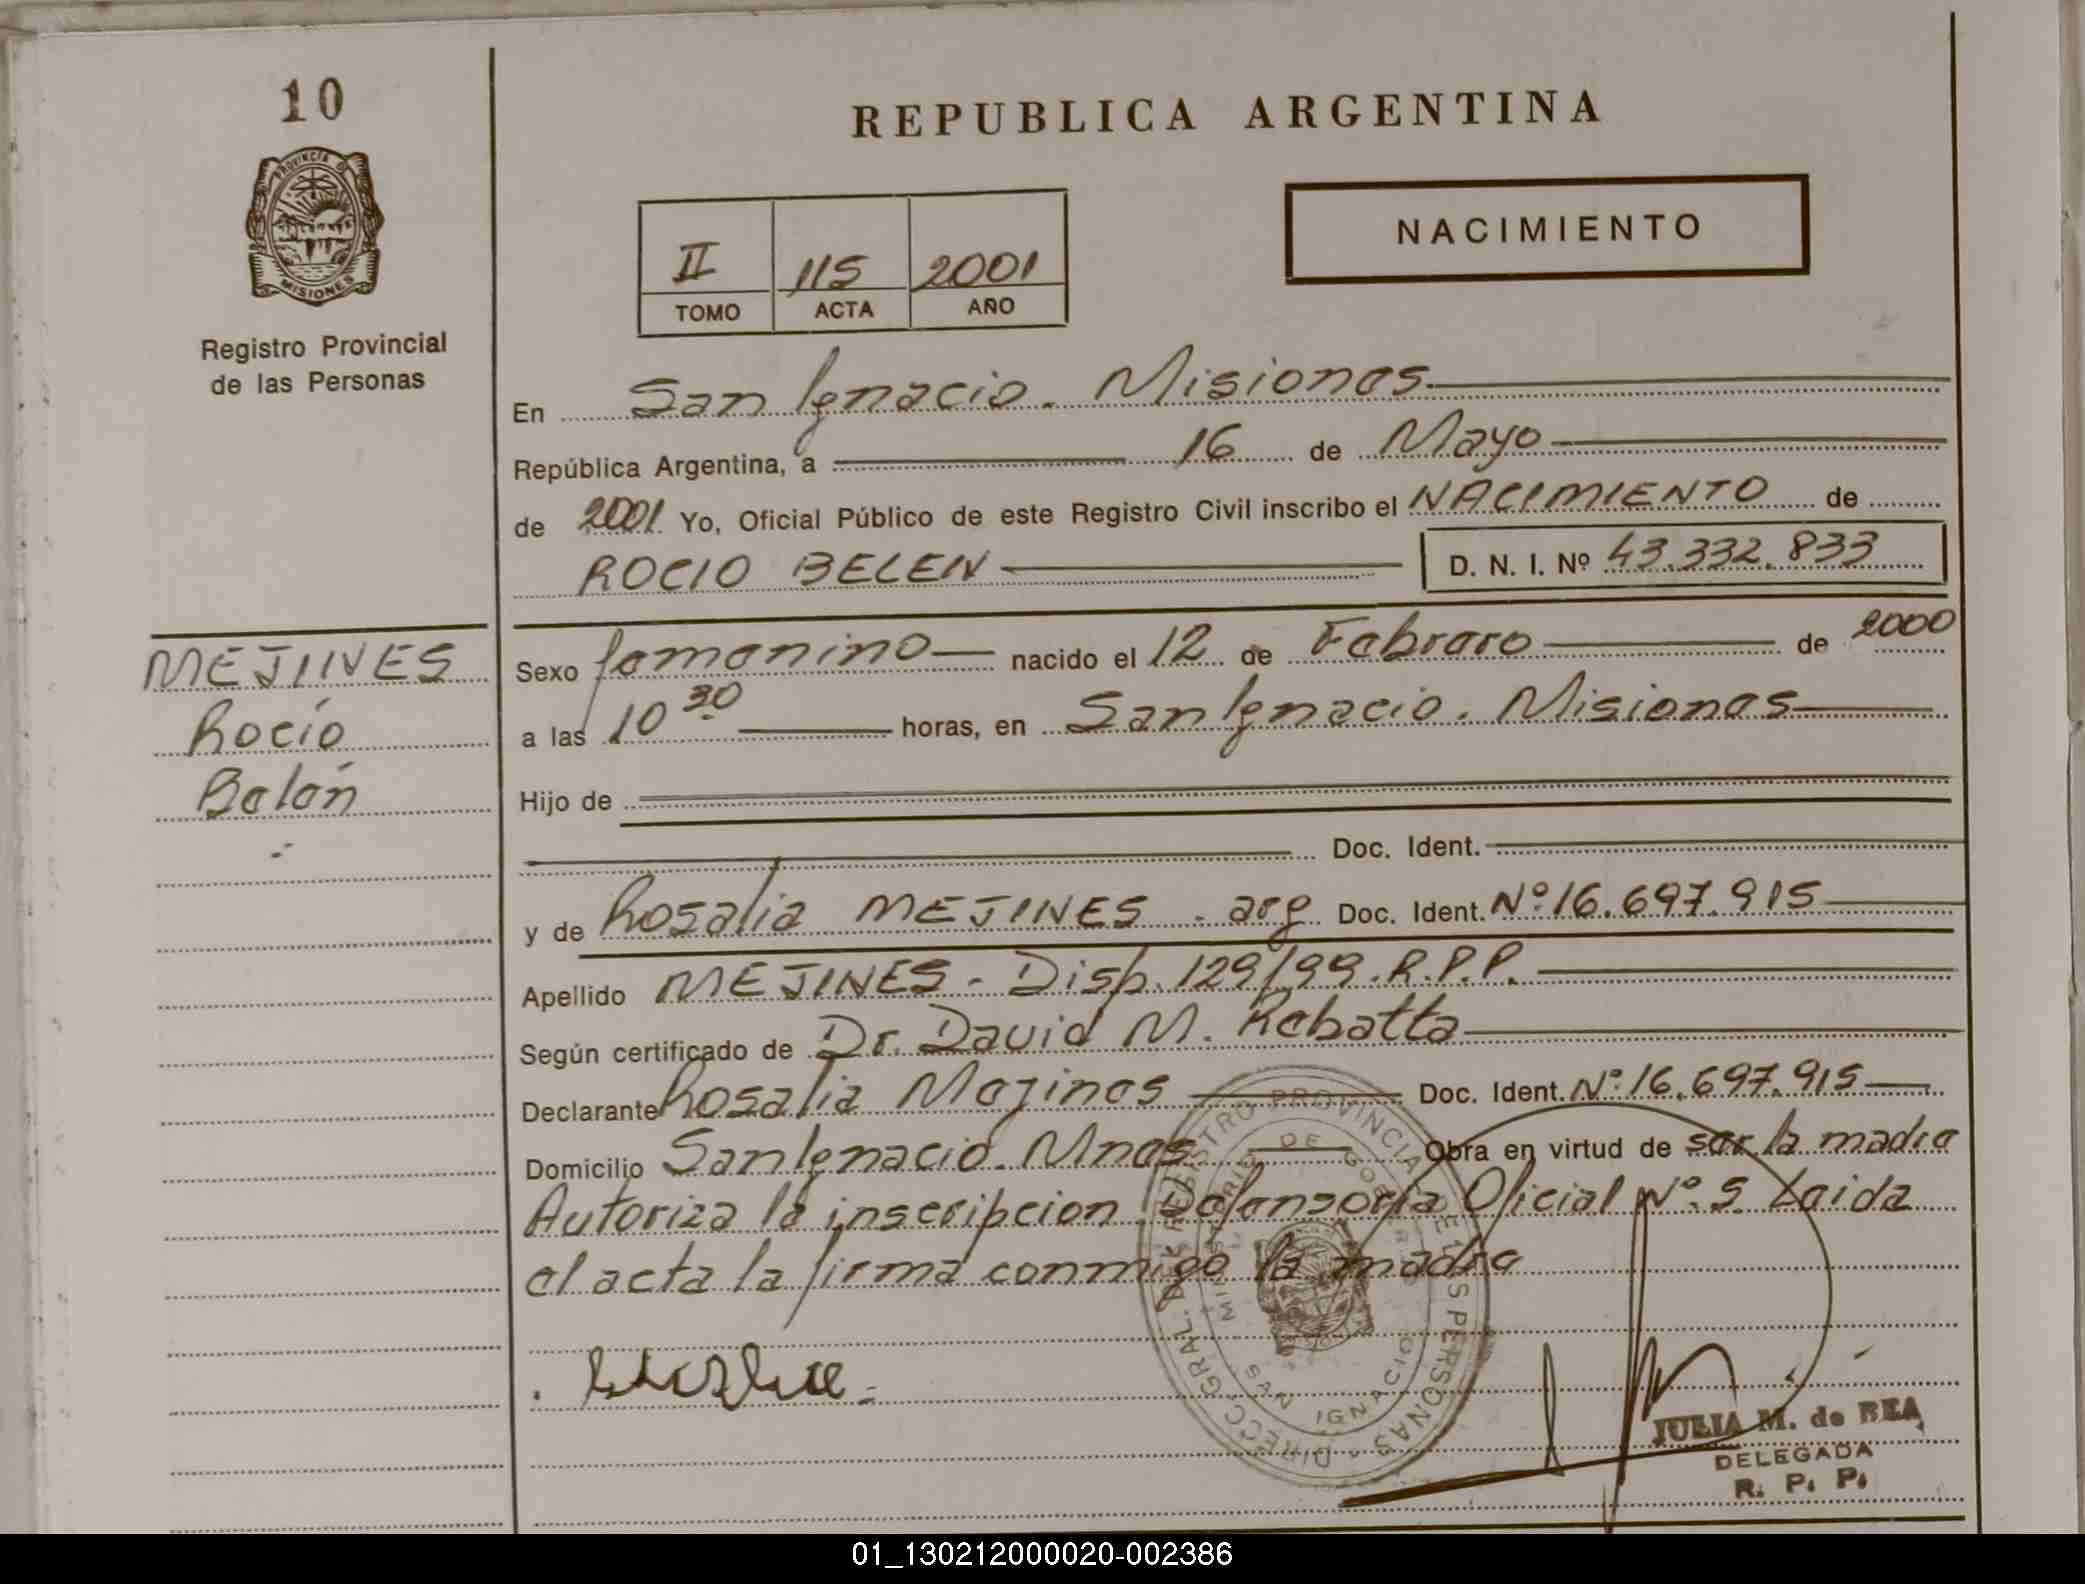 10
PROVINCIA DE
MISIONES
Registro Provincial
de las Personas
REPUBLICA ARGENTINA
II 115 2001
TOMO ACTA AÑO
NACIMIENTO
En San Ignacio. Misiones
República Argentina, a 16 de Mayo
de 2001 Yo, Oficial Público de este Registro Civil inscribo el NACIMIENTO de
ROCIO BELEN D. N. I. Nº 43.332.833
MEJINES
Rocío
Belén
Sexo femenino nacido el 12 de Febrero de 2000
a las 10 30 horas, en San Ignacio. Misiones
Hijo de
Doc. Ident.
y de Rosalia MEJINES - arg Doc. Ident. Nº 16.697.915
Apellido MEJINES - Disp. 129/99. R.P.P.
Según certificado de Dr. David M. Rebatta
Declarante Rosalia Mejines Doc. Ident. Nº 16.697.915
Domicilio San Ignacio. Mnes Obra en virtud de ser la madre
Autoriza la inscripcion Defensoria Oficial Nº 5. Leida
el acta la firma conmigo la madre
DIRECC. GRAL. DEL REGISTRO PROVINCIAL DE LAS PERSONAS
MINISTERIO DE GOBIERNO
SAN IGNACIO
JULIA M. de BEA
DELEGADA
R. P. P.
01_130212000020-002386